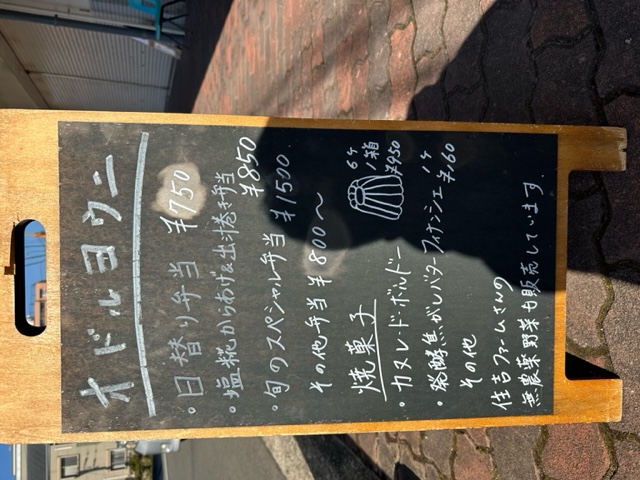 オドルヨウニ
・日替り弁当 ¥750
・塩糀からあげ&出汁巻き弁当
¥850
・旬のスペシャル弁当 ¥1500.
その他弁当 ¥800〜
焼菓子
6ケ
1箱
・カヌレ・ド・ボルドー ¥950
1ケ
・発酵焦がしバターフィナンシェ ¥160
その他
住吉ファームさんの
無農薬野菜も販売しています.